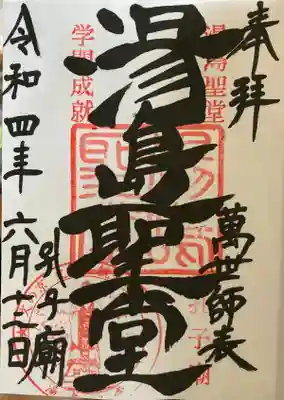 奉拝
萬世師表
湯島聖堂
湯島聖堂
学問成就
孔子廟
令和四年六月十二日